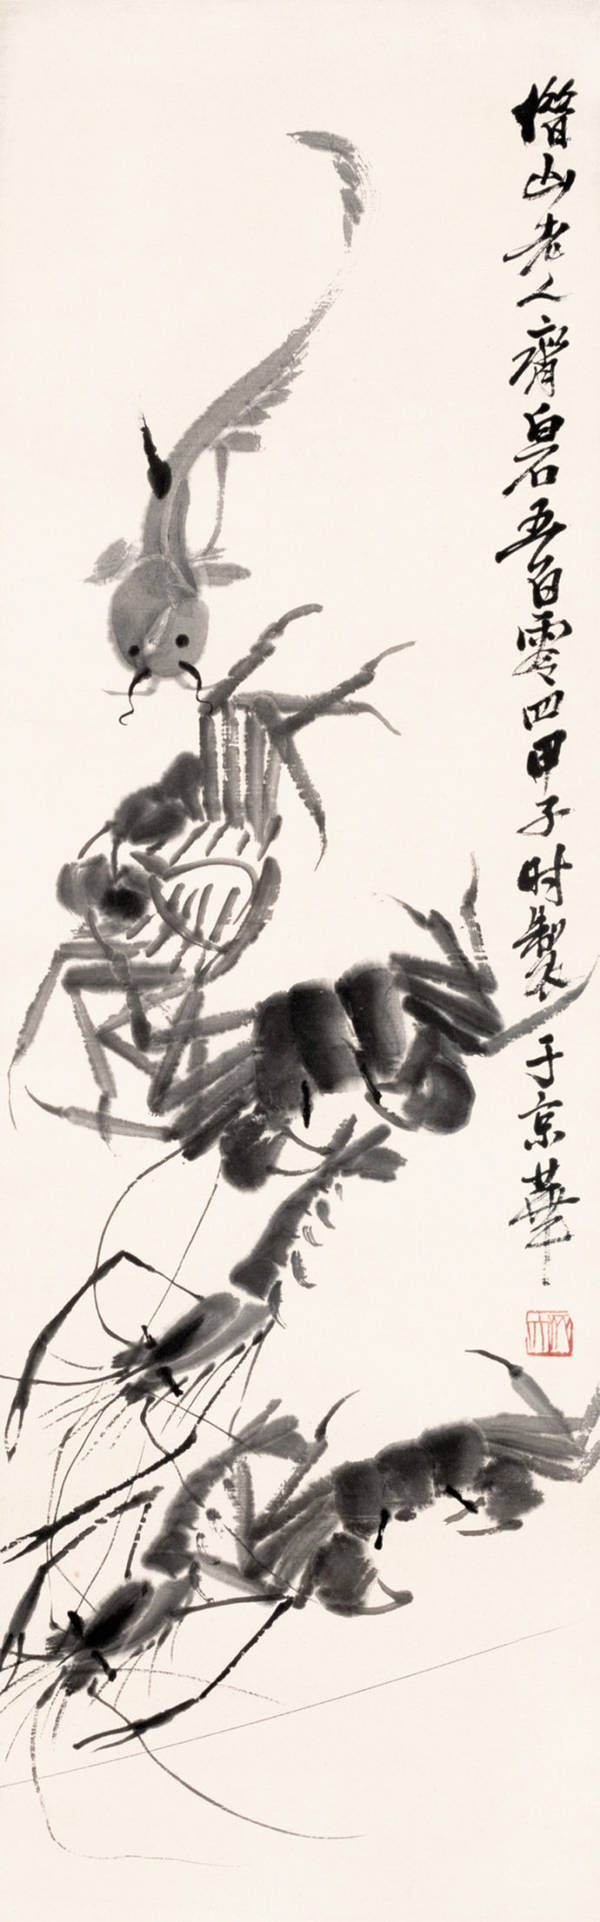 借山老人齊白石五百零四甲子时製于京華